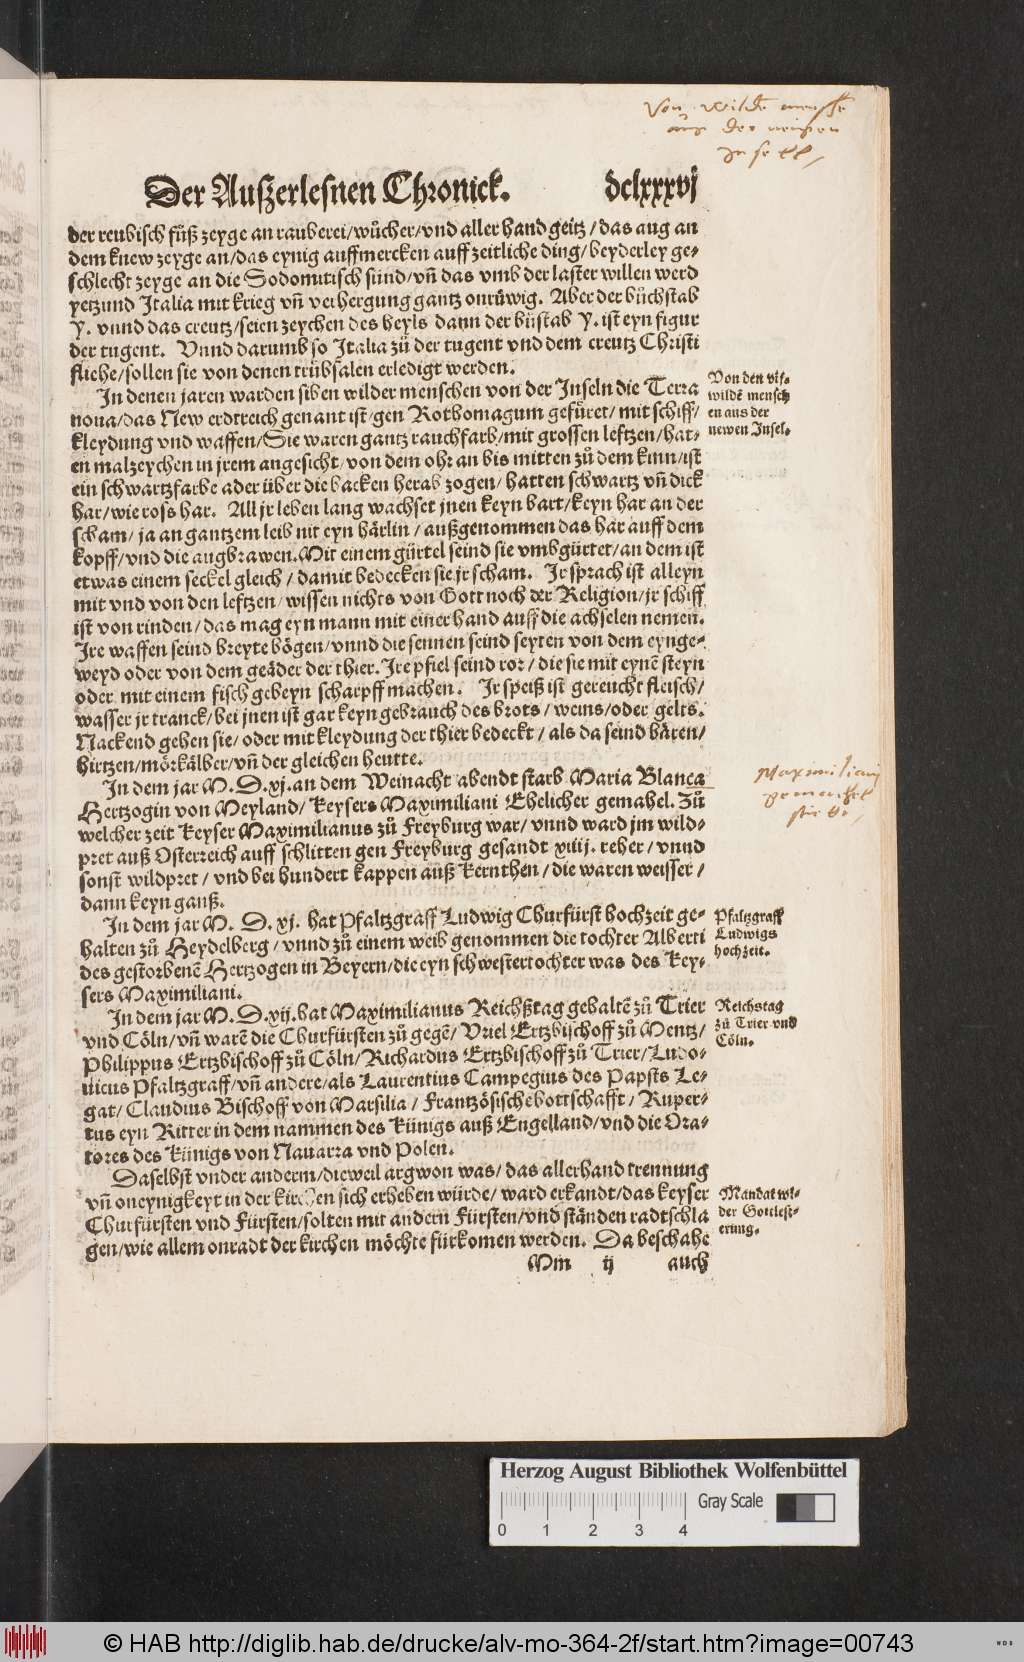 Von wilde mensche
aus der neuwen
Insell /
Der Außerlesnen Chronick. dclxxxvj
der reubisch fůß zeyge an rauberei/wůcher/vnd aller hand geitz/das aug an
dem knew zeyge an/das eynig auffmercken auff zeitliche ding/beyderley ge-
schlecht zeyge an die Sodomitisch sünd/vñ das vmb der laster willen werd
yetzund Italia mit krieg vñ verhergung gantz onrüwig. Aber der bůchstab
Y. vnnd das creutz/seien zeychen des heyls dann der bůstab Y. ist eyn figur
der tugent. Vnnd darumb so Italia zů der tugent vnd dem creutz Christi
fliehe/sollen sie von denen trübsalen erledigt werden.
In denen jaren warden siben wilder menschen von der Inseln die Terra
noua/das New erdtreich genant ist/gen Rothomagum gefüret/mit schiff/
kleydung vnd waffen/Sie waren gantz rauchfarb/mit grossen leftzen/hat-
en malzeychen in jrem angesicht/von dem ohr an bis mitten zů dem kinn/ist
ein schwartzfarbe ader über die backen herab zogen/hatten schwartz vñ dick
har/wie ross har. All jr leben lang wachset jnen keyn bart/keyn har an der
scham/ja an gantzem leib nit eyn härlin/außgenommen das har auff dem
kopff/vnd die augbrawen. Mit einem gürtel seind sie vmbgürtet/an dem ist
etwas einem seckel gleich/damit bedecken sie jr scham. Ir sprach ist alleyn
mit vnd von den leftzen/wissen nichts von Gott noch der Religion/jr schiff
ist von rinden/das mag eyn mann mit einer hand auff die achselen nemen.
Ire waffen seind breyte bögen/vnnd die sennen seind seyten von dem eynge-
weyd oder von dem geäder der thier. Ire pfiel seind ror/die sie mit eynē steyn
oder mit einem fisch gebeyn scharpff machen. Ir speiß ist gereucht fleisch/
wasser jr tranck/bei jnen ist gar keyn gebrauch des brots/weins/oder gelts.
Nackend gehen sie/oder mit kleydung der thier bedeckt/als da seind bären/
hirtzen/mörkälber/vñ der gleichen heutte.
In dem jar M. D. xj. an dem Weinacht abendt starb Maria Blanca
Hertzogin von Meyland/Keysers Maximiliani Ehelicher gemahel. Zů
welcher zeit Keyser Maximilianus zů Freyburg war/vnnd ward jm wild-
pret auß Osterreich auff schlitten gen Freyburg gesandt xiiij. reher/vnnd
sonst wildpret/vnd bei hundert kappen auß Kernthen/die waren weisser/
dann keyn ganß.
In dem jar M. D. xj. hat Pfaltzgraff Ludwig Churfürst hochzeit ge-
halten zů Heydelberg/vnnd zů einem weib genommen die tochter Alberti
des gestorbenē Hertzogen in Beyern/die eyn schwestertochter was des Key-
sers Maximiliani.
In dem jar M. D. xij. hat Maximilianus Reichßtag gehaltē zů Trier
vnd Cöln/vñ warē die Churfürsten zů gegē/Vriel Ertzbischoff zů Mentz/
Philippus Ertzbischoff zů Cöln/Richardus Ertzbischoff zů Trier/Ludo-
uicus Pfaltzgraff/vñ andere/als Laurentius Campegius des Papsts Le-
gat/Claudius Bischoff von Marsilia/Frantzösische bottschafft/Ruper-
tus eyn Ritter in dem nammen des Künigs auß Engelland/vnd die Ora-
tores des Künigs von Nauarra vnd Polen.
Daselbst vnder anderm/dieweil argwon was/das allerhand trennung
vñ oneynigkeyt in der kirchen sich erheben würde/ward erkandt/das keyser
Churfürsten vnd Fürsten/solten mit andern Fürsten/vnd ständen radtschla
gen/wie allem onradt der kirchen möchte fürkomen werden. Da beschahe
Mm ij auch
Von den vij.
wildē mensch
en aus der
newen Insel.
Maximiliani
gemachel
stirbt /
Pfaltzgraff
Ludwigs
hochzeit.
Reichstag
zů Trier vnd
Cöln.
Mandat wi-
der Gottlest-
erung.
Herzog August Bibliothek Wolfenbüttel
Gray Scale
0 1 2 3 4
© HAB http://diglib.hab.de/drucke/alv-mo-364-2f/start.htm?image=00743